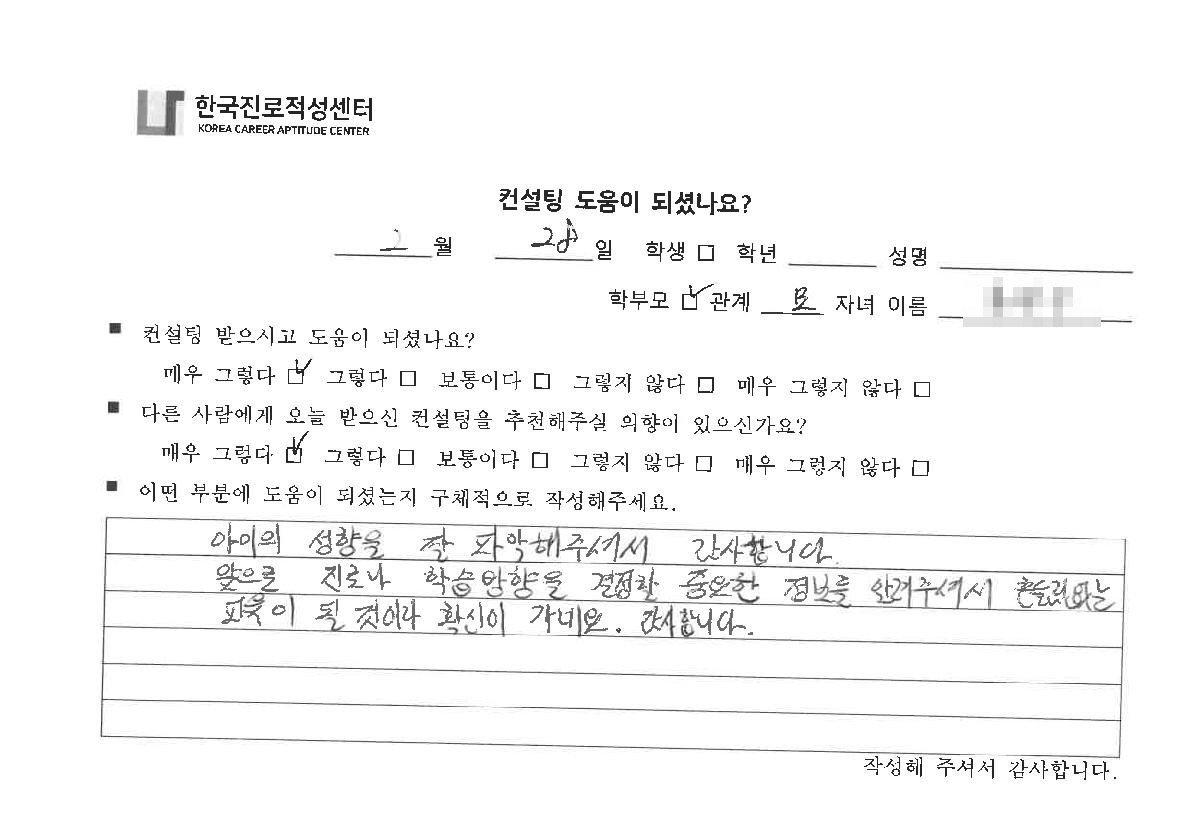 한국진로적성센터
KOREA CAREER APTITUDE CENTER
컨설팅 도움이 되셨나요?
2 월 28 일 학생 □ 학년 성명
학부모 ☑ 관계 모 자녀 이름
■ 컨설팅 받으시고 도움이 되셨나요?
매우 그렇다 ☑ 그렇다 □ 보통이다 □ 그렇지 않다 □ 매우 그렇지 않다 □
■ 다른 사람에게 오늘 받으신 컨설팅을 추천해주실 의향이 있으신가요?
매우 그렇다 ☑ 그렇다 □ 보통이다 □ 그렇지 않다 □ 매우 그렇지 않다 □
■ 어떤 부분에 도움이 되셨는지 구체적으로 작성해주세요.
아이의 성향을 잘 파악해주셔서 감사합니다.
앞으로 진로나 학습방향을 결정할 중요한 정보를 알려주셔서
이 될 것이라 확신이 가네요. 감사합니다.
작성해 주셔서 감사합니다.